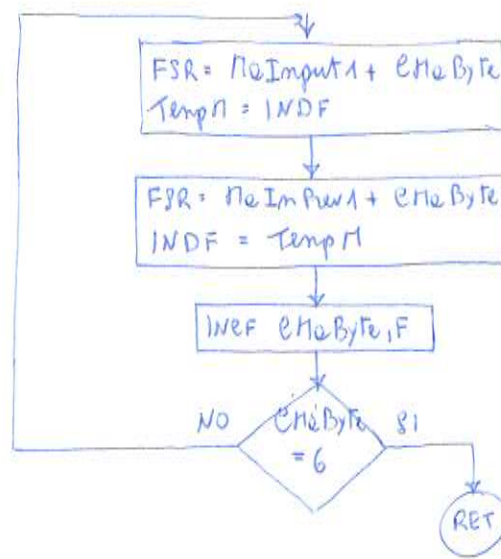 FSR = MaInput1 + CMaByte
TempM = INDF
FSR = MaInPrev1 + CMaByte
INDF = TempM
INCF CMaByte,F
NO
CMaByte
SI
= 6
RET